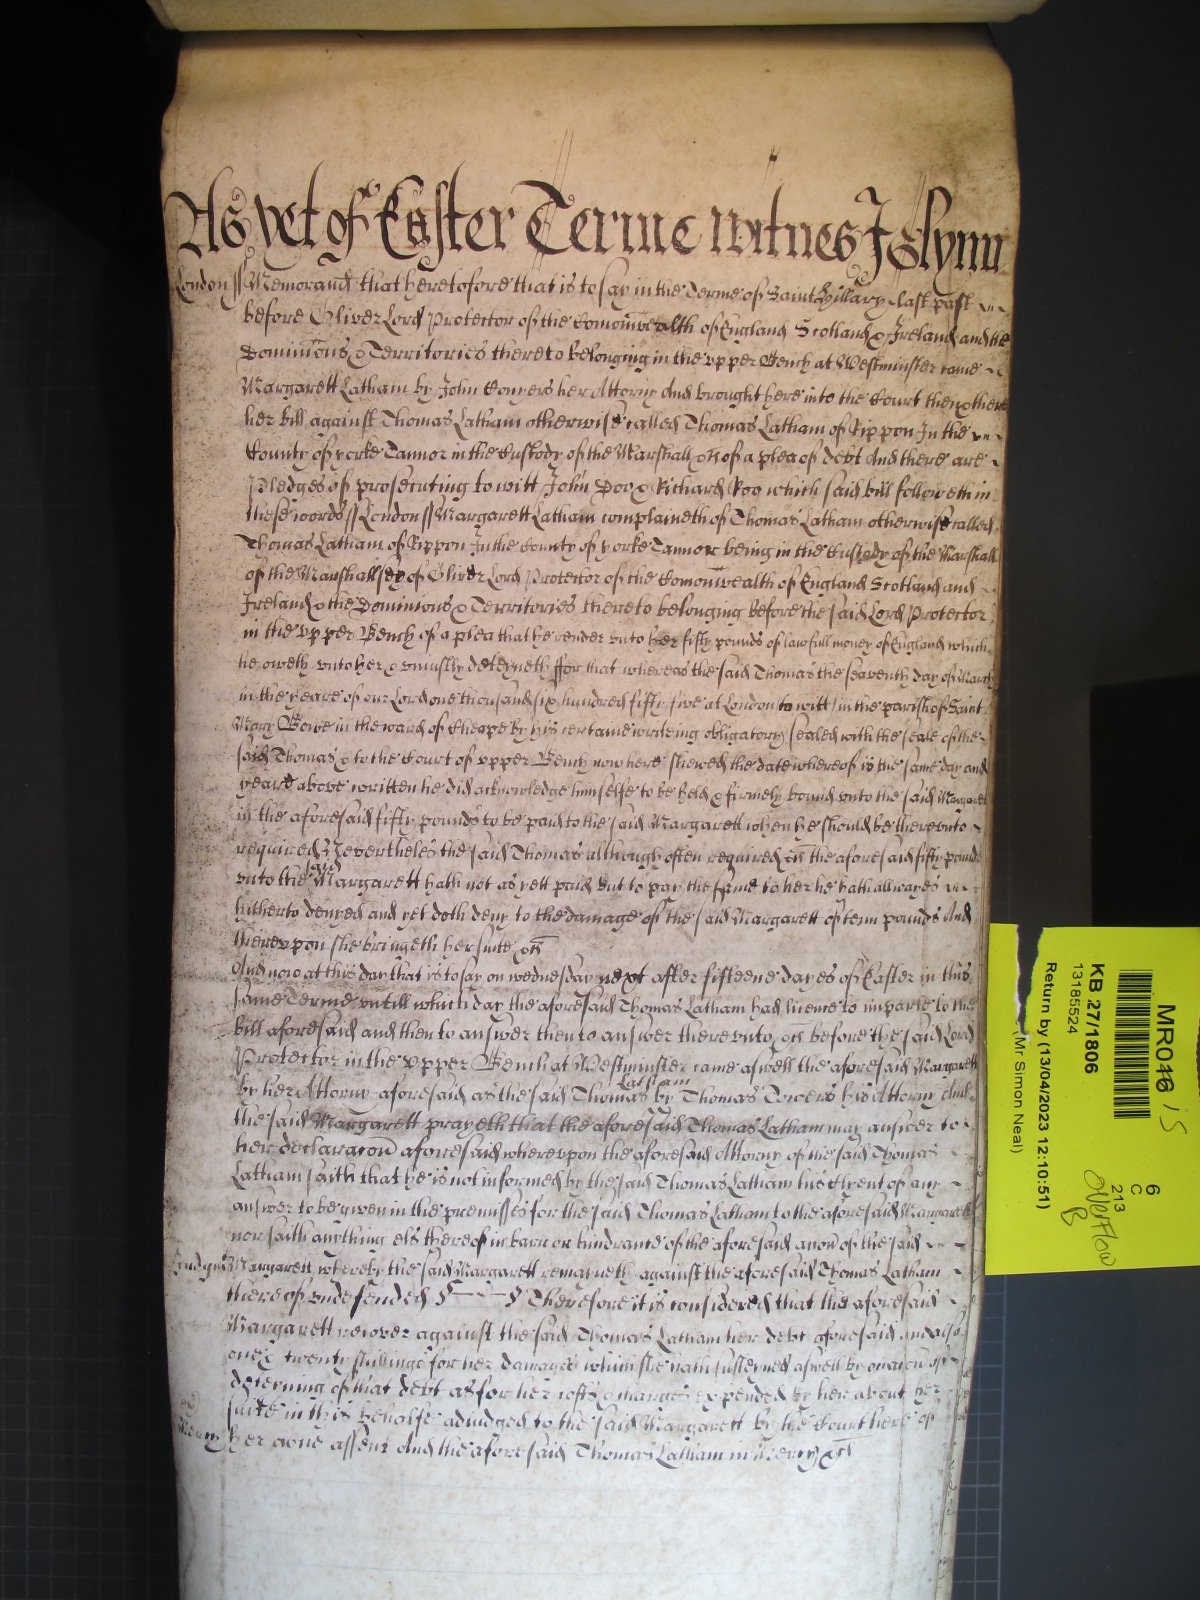 As yet of Easter Terme witnes J Glynn
London ss Memorand that heretofore that is to say in the Terme of Saint Hillary last past
before Oliver Lord Protector of the Comonwealth of England Scotland & Ireland and the
Dominions & Territories thereto belonging in the upper Bench at Westminster came
Margarett Latham by John Conyers her Attorny And brought here into the Court then & there
her bill against Thomas Latham otherwise called Thomas Latham of Rippon In the
County of yorke Tannor in the Custody of the Marshall &c of a plea of debt And there are
Pledges of prosecuting to witt John Doo & Richard Roo which said bill followeth in
these words ss London ss Margarett Latham complaineth of Thomas Latham otherwise called
Thomas Latham of Rippon In the County of yorke Tannor being in the Custody of the Marshall
of the Marshallsey of Oliver Lord Protector of the Comonwealth of England Scotland and
Ireland & the Dominions & Territories thereto belonging before the said Lord Protector
in the upper Bench of a plea that he render unto her fifty pounds of lawfull money of England which
he oweth unto her & uniustly deteyneth ffor that whereas the said Thomas the seaventh day of March
in the yeare of our Lord one thousand six hundred fifty five at London to witt in the parish of Saint
Mary Bowe in the ward of Cheape by his certaine writeing obligatory sealed with the seale of the
said Thomas & to the Court of upper Bench now here shewed the date whereof is the same day and
yeare above written he did acknowledge himselfe to be held & firmely bound unto the said Margarett
in the aforesaid fifty pounds to be paid to the said Margarett when he should be thereunto
required Neverthelesse the said Thomas although often required &c the aforesaid fifty pounds
unto the said Margarett hath not as yett paid but to pay the same to her he hath allwayes
hitherto denyed and yet doth deny to the damage of the said Margarett of tenn pounds And
thereupon she bringeth her suite &c
And now at this day that is to say on wednesday next after fifteene dayes of Easter in this
same Terme untill which day the aforesaid Thomas Latham had licence to imparle to the
bill aforesaid and then to answer then to answer thereunto &c before the said Lord
Protector in the upper Bench at Westminster came aswell the aforesaid Margarett
by her Attorny aforesaid as the said Thomas Latham by Thomas Towers his Attorny And
the said Margarett prayeth that the aforesaid Thomas Latham may answer to
her declaracon aforesaid whereupon the aforesaid Attorny of the said Thomas
Latham saith that he is not informed by the said Thomas Latham his Clyent of any
answer to be given in the premisses for the said Thomas Latham to the aforesaid Margarett
nor saith anything els thereof in barr or hindrance of the aforesaid accon of the said
Margarett whereby the said Margarett remayneth against the aforesaid Thomas Latham
thereof undefended Therefore it is considered that the aforesaid
Margarett recover against the said Thomas Latham her debt aforesaid and also
twenty shillings for her damages which she hath susteyned aswell by occacon of
deteyning of that debt as for her costs & charges expended by her about her
suite in this behalfe adiudged to the said Margarett by the Court here of
Mercy her owne assent And the aforesaid Thomas Latham in mercy &c
MR0
KB 27/1806
13185524
Return by (13/04/2023 12:10:51)
(Mr Simon Neal)
6
C
213
overflow
B